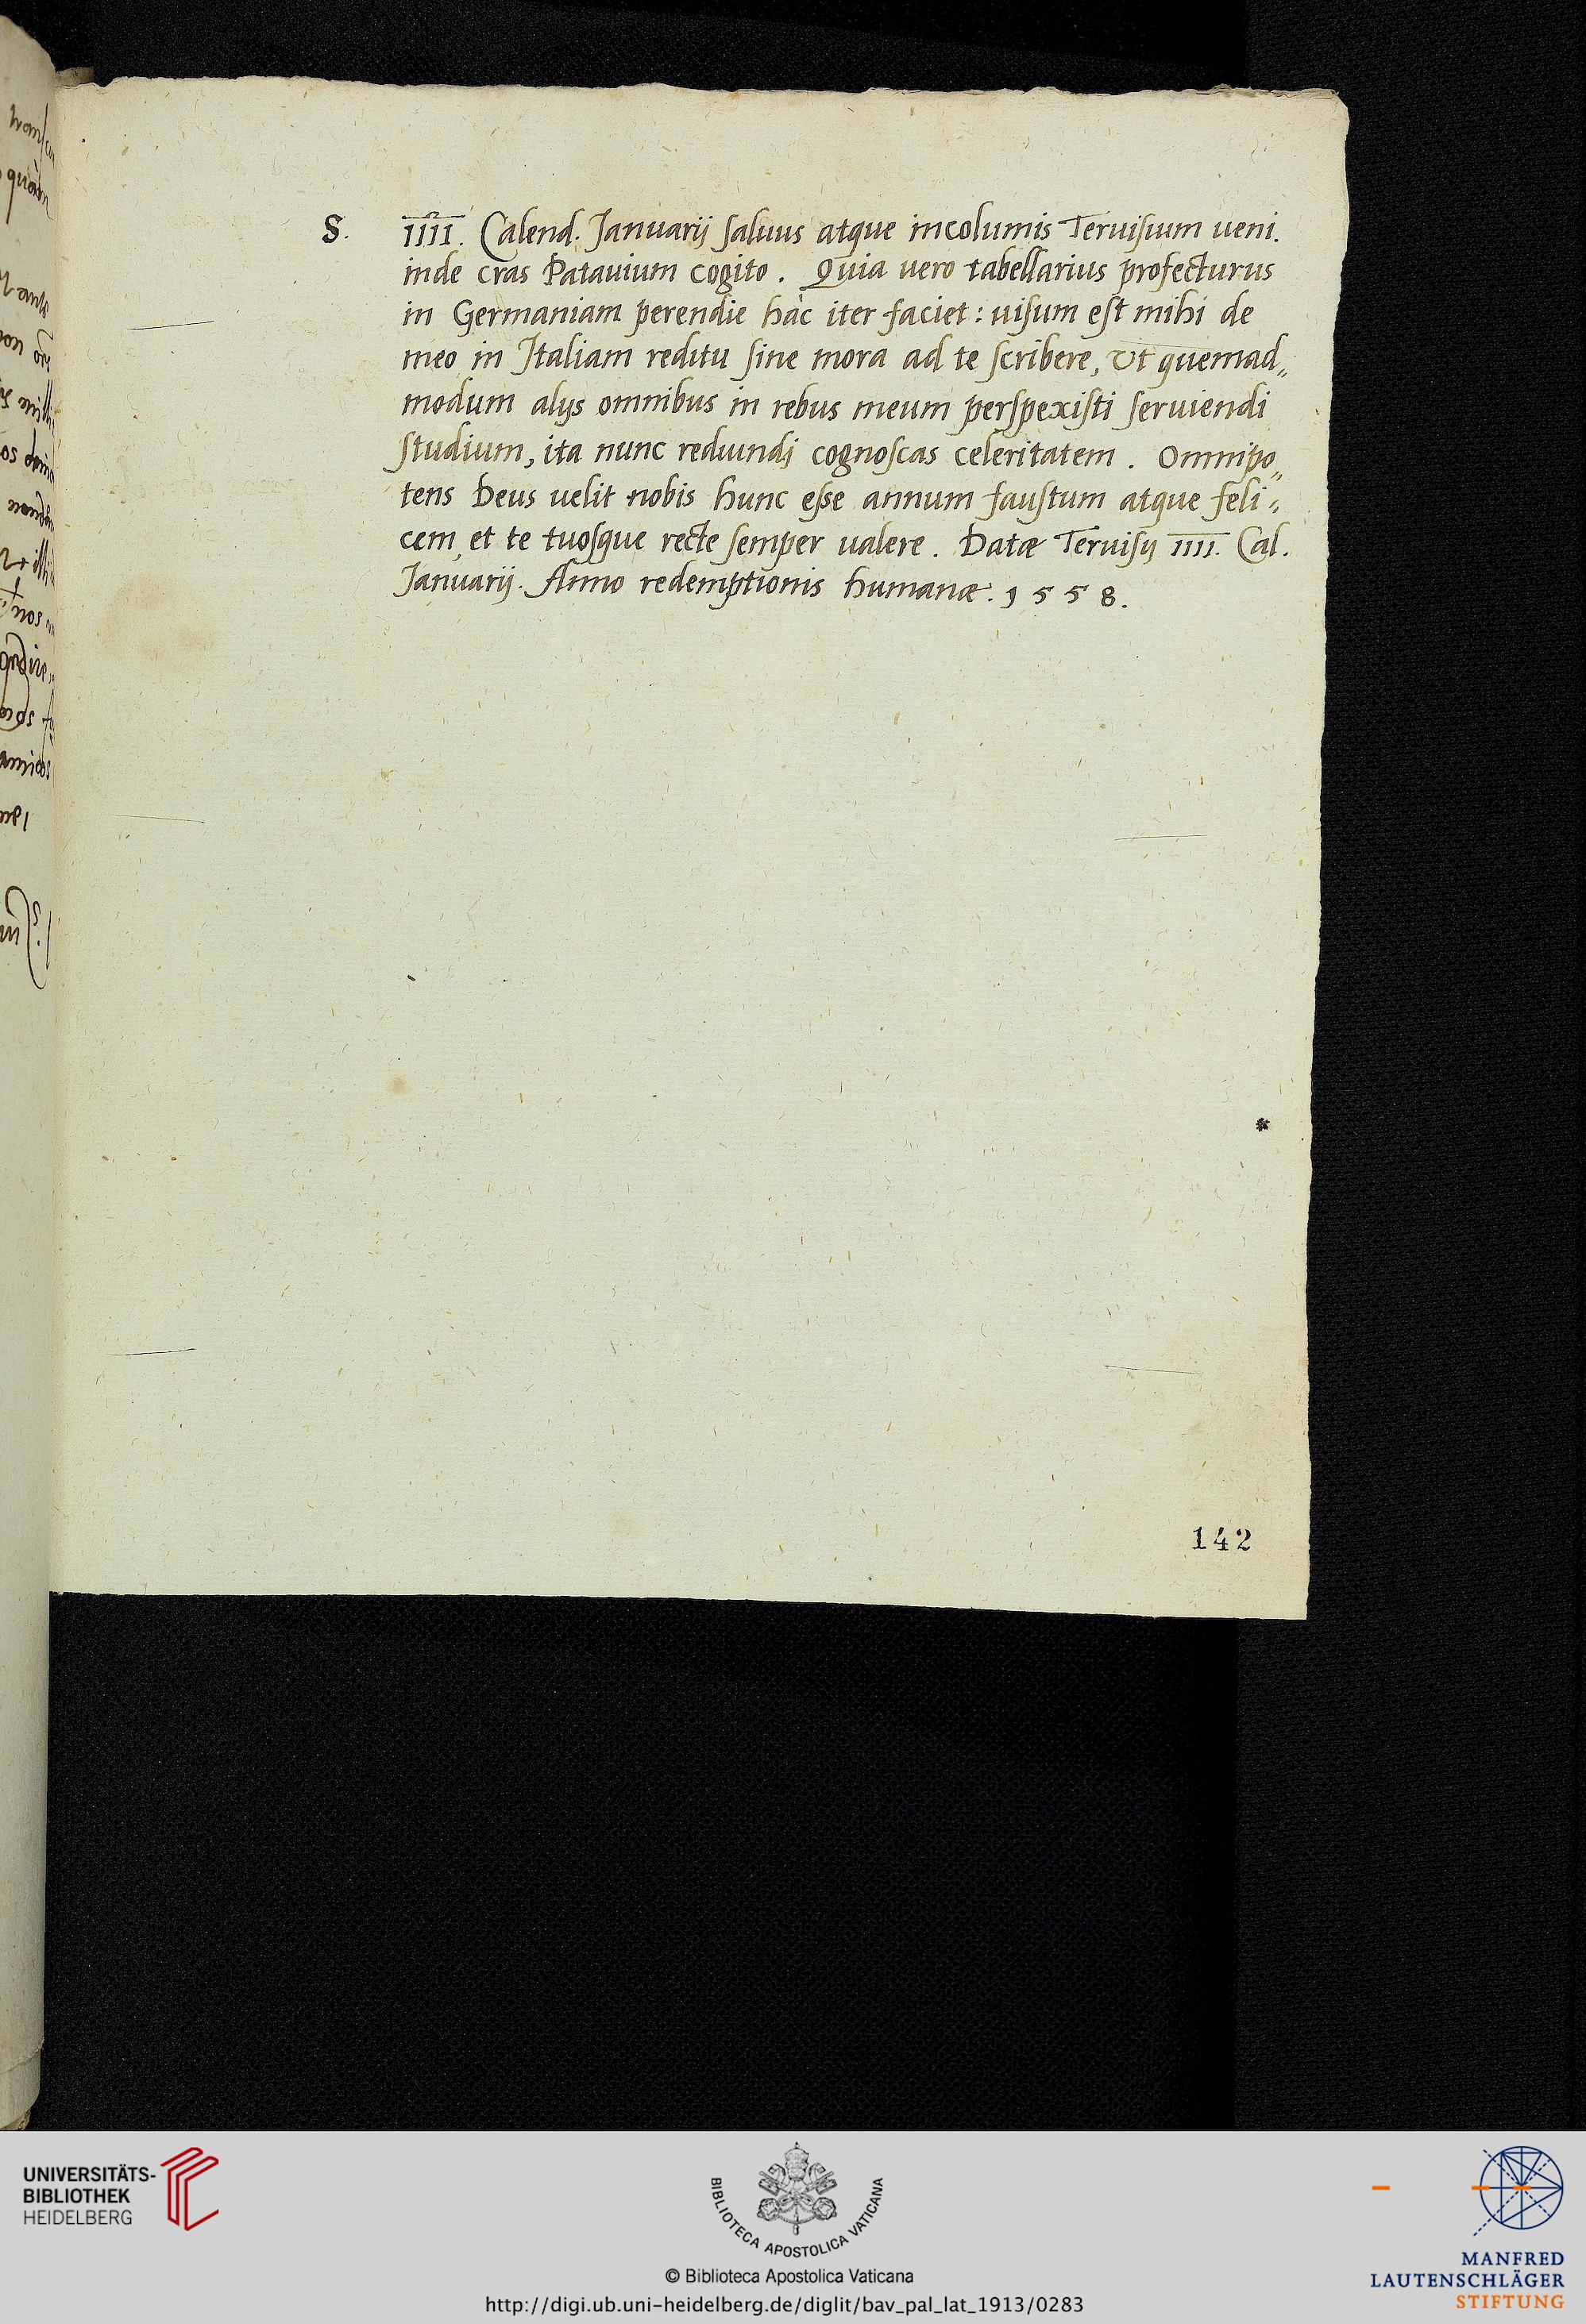 S. IIII. Calend. Januarij saluus atque incolumis Teruisium ueni.
inde cras Patauium cogito. Quia uero tabellarius profecturus
in Germaniam perendie hàc iter faciet: uisum est mihi de
meo in Italiam reditu sine mora ad te scribere, Ut quemad„
modum alijs omnibus in rebus meum perspexisti seruiendi
studium, ita nunc redeundi cognoscas celeritatem. Omnipo„
tens Deus uelit nobis hunc esse annum faustum atque feli„
cem, et te tuosque recte semper ualere. Datæ Teruisij IIII. Cal.
Januarij. Anno redemptionis humanæ. 1558.
142
UNIVERSITÄTS-
BIBLIOTHEK
HEIDELBERG
BIBLIOTECA APOSTOLICA VATICANA
© Biblioteca Apostolica Vaticana
http://digi.ub.uni-heidelberg.de/diglit/bav_pal_lat_1913/0283
MANFRED
LAUTENSCHLÄGER
STIFTUNG